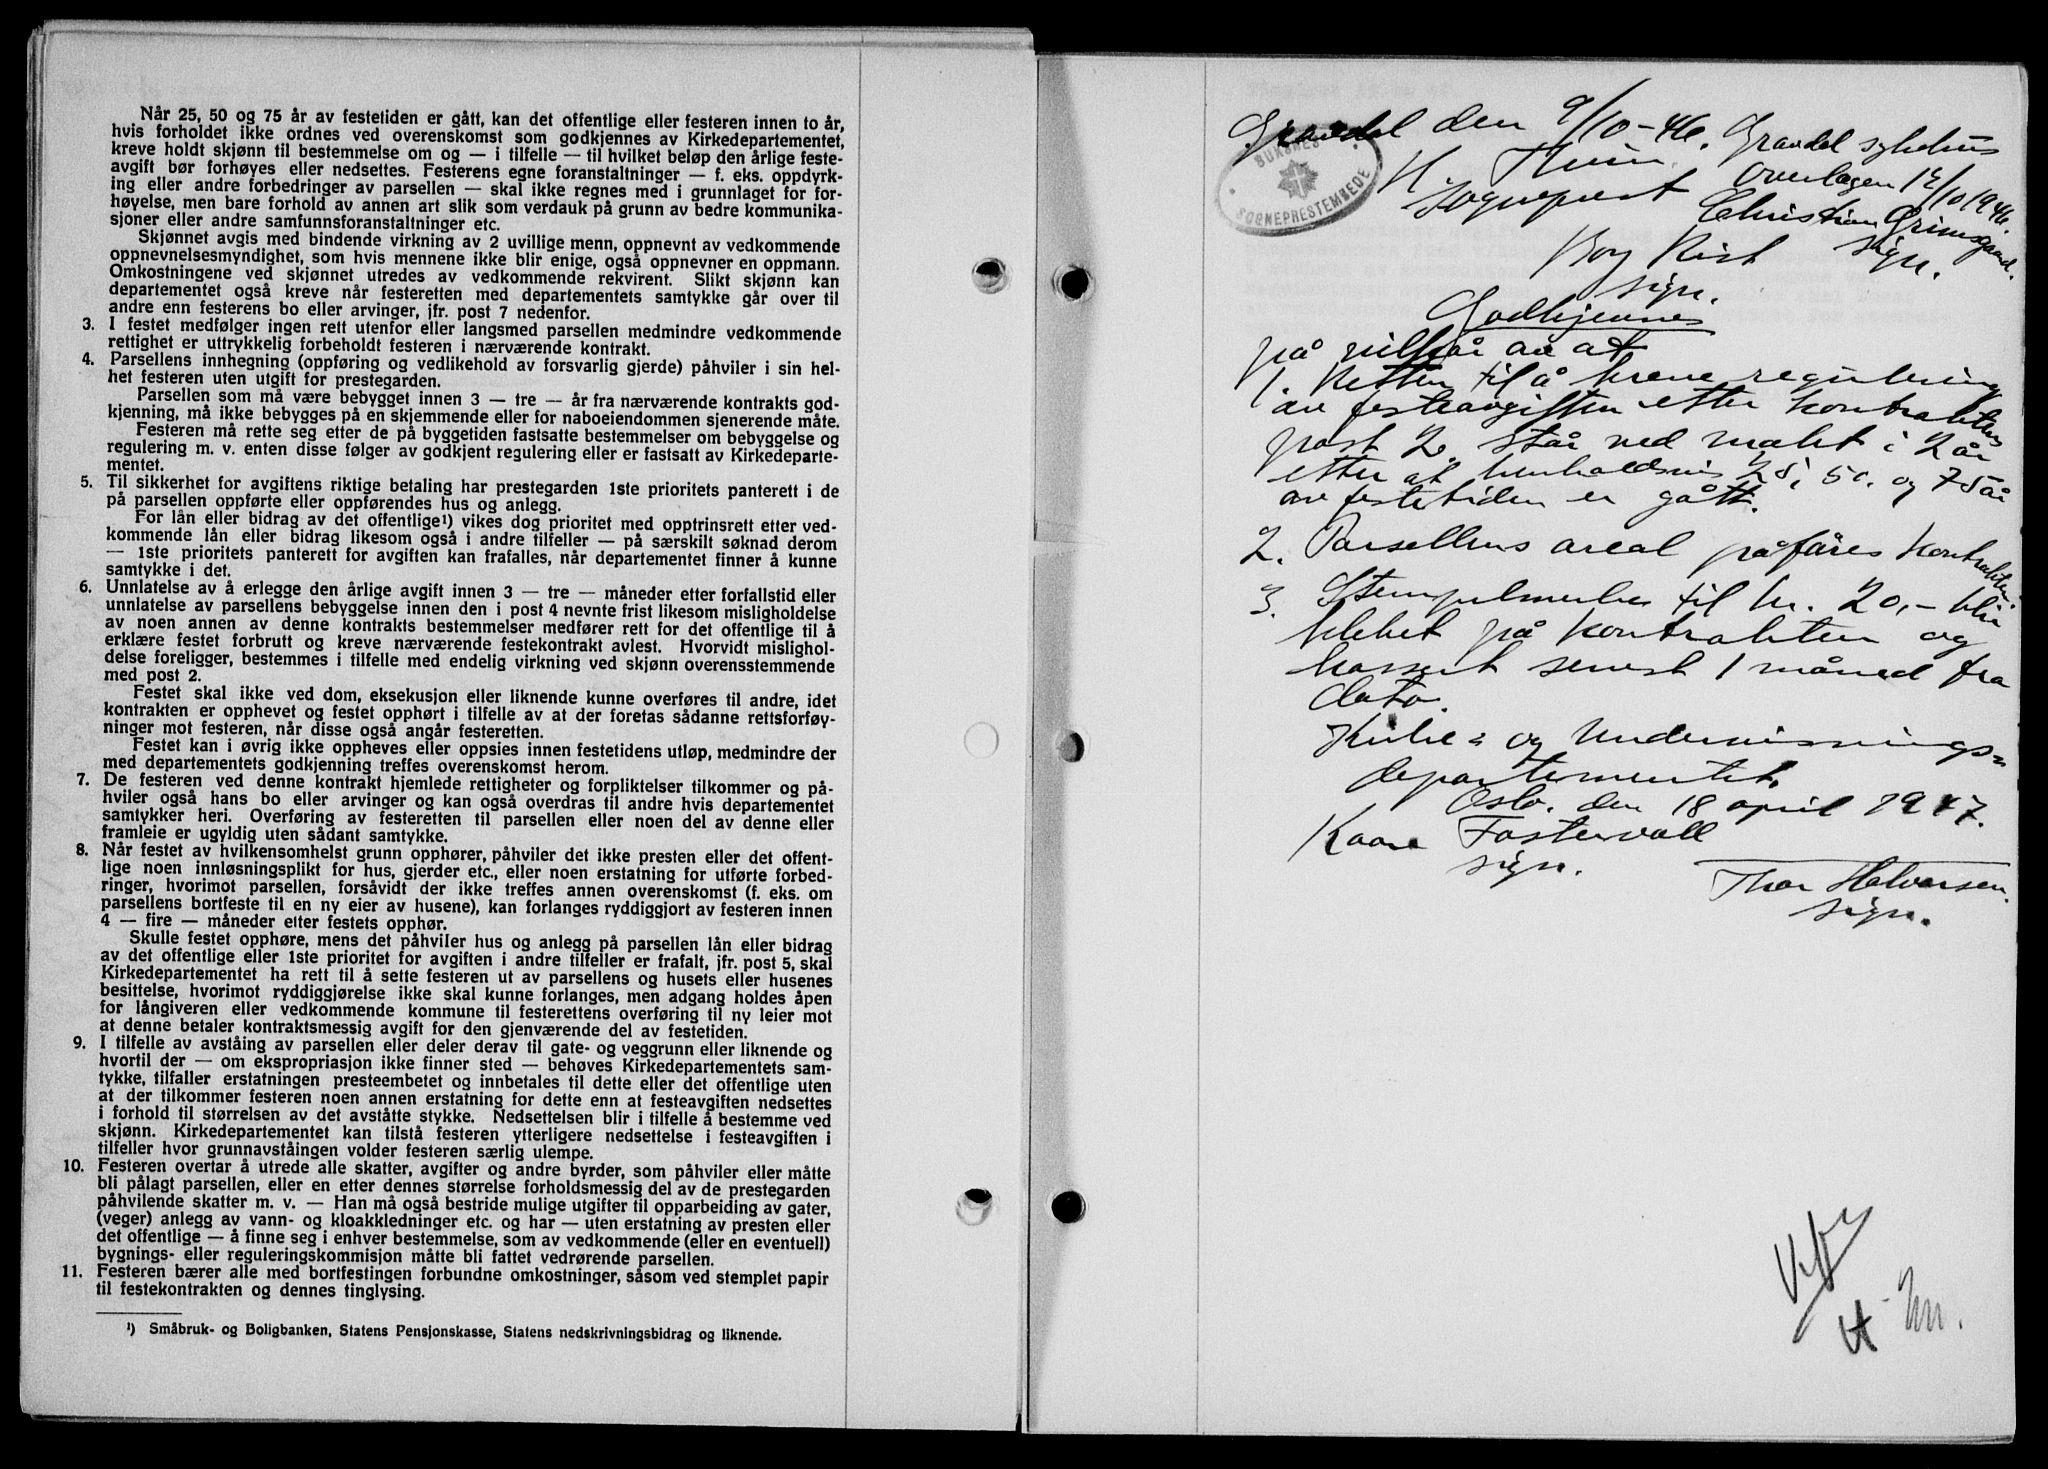 Når 25, 50 og 75 år av festetiden er gått, kan det offentlige eller festeren innen to år,
hvis forholdet ikke ordnes ved overenskomst som godkjennes av Kirkedepartementet,
kreve holdt skjønn til bestemmelse om og — i tilfelle — til hvilket beløp den årlige feste-
avgift bør forhøyes eller nedsettes. Festerens egne foranstaltninger — f. eks. oppdyrk-
ing eller andre forbedringer av parsellen — skal ikke regnes med i grunnlaget for for-
høyelse, men bare forhold av annen art slik som verdauk på grunn av bedre kommunika-
sjoner eller andre samfunnsforanstaltninger etc.
Skjønnet avgis med bindende virkning av 2 uvillige menn, oppnevnt av vedkommende
oppnevnelsesmyndighet, som hvis mennene ikke blir enige, også oppnevner en oppmann.
Omkostningene ved skjønnet utredes av vedkommende rekvirent. Slikt skjønn kan
departementet også kreve når festeretten med departementets samtykke går over til
andre enn festerens bo eller arvinger, jfr. post 7 nedenfor.
3. I festet medfølger ingen rett utenfor eller langsmed parsellen medmindre vedkommende
rettighet er uttrykkelig forbeholdt festeren i nærværende kontrakt.
4. Parsellens innhegning (oppføring og vedlikehold av forsvarlig gjerde) påhviler i sin hel-
het festeren uten utgift for prestegarden.
Parsellen som må være bebygget innen 3 — tre — år fra nærværende kontrakts god-
kjenning, må ikke bebygges på en skjemmende eller for naboeiendommen sjenerende måte.
Festeren må rette seg etter de på byggetiden fastsatte bestemmelser om bebyggelse og
regulering m. v. enten disse følger av godkjent regulering eller er fastsatt av Kirkedeparte-
mentet.
5. Til sikkerhet for avgiftens riktige betaling har prestegarden 1ste prioritets panterett i de
på parsellen oppførte eller oppførendes hus og anlegg.
For lån eller bidrag av det offentlige¹) vikes dog prioritet med opptrinsrett etter ved-
kommende lån eller bidrag likesom også i andre tilfeller — på særskilt søknad derom
— 1ste prioritets panterett for avgiften kan frafalles, når departementet finner å kunne
samtykke i det.
6. Unnlatelse av å erlegge den årlige avgift innen 3 — tre — måneder etter forfallstid eller
unnlatelse av parsellens bebyggelse innen den i post 4 nevnte frist likesom misligholdelse
av noen annen av denne kontrakts bestemmelser medfører rett for det offentlige til å
erklære festet forbrutt og kreve nærværende festekontrakt avlest. Hvorvidt mislighol-
delse foreligger, bestemmes i tilfelle med endelig virkning ved skjønn overensstemmende
med post 2.
Festet skal ikke ved dom, eksekusjon eller liknende kunne overføres til andre, idet
kontrakten er opphevet og festet opphørt i tilfelle av at der foretas sådanne rettsforføy-
ninger mot festeren, når disse også angår festeretten.
Festet kan i øvrig ikke oppheves eller oppsies innen festetidens utløp, medmindre der
med departementets godkjenning treffes overenskomst herom.
7. De festeren ved denne kontrakt hjemlede rettigheter og forpliktelser tilkommer og på-
hviler også hans bo eller arvinger og kan også overdras til andre hvis departementet
samtykker heri. Overføring av festeretten til parsellen eller noen del av denne eller
framleie er ugyldig uten sådant samtykke.
8. Når festet av hvilkensomhelst grunn opphører, påhviler det ikke presten eller det offent-
lige noen innløsningsplikt for hus, gjerder etc., eller noen erstatning for utførte forbed-
ringer, hvorimot parsellen, forsåvidt der ikke treffes annen overenskomst (f. eks. om
parsellens bortfeste til en ny eier av husene), kan forlanges ryddiggjort av festeren innen
4 — fire — måneder etter festets opphør.
Skulle festet opphøre, mens det påhviler hus og anlegg på parsellen lån eller bidrag
av det offentlige eller 1ste prioritet for avgiften i andre tilfeller er frafalt, jfr. post 5, skal
Kirkedepartementet ha rett til å sette festeren ut av parsellens og husets eller husenes
besittelse, hvorimot ryddiggjørelse ikke skal kunne forlanges, men adgang holdes åpen
for långiveren eller vedkommende kommune til festerettens overføring til ny leier mot
at denne betaler kontraktsmessig avgift for den gjenværende del av festetiden.
9. I tilfelle av avståing av parsellen eller deler derav til gate- og veggrunn eller liknende og
hvortil der — om ekspropriasjon ikke finner sted — behøves Kirkedepartementets sam-
tykke, tilfaller erstatningen presteembetet og innbetales til dette eller det offentlige uten
at der tilkommer festeren noen annen erstatning for dette enn at festeavgiften nedsettes
i forhold til størrelsen av det avståtte stykke. Nedsettelsen blir i tilfelle å bestemme ved
skjønn. Kirkedepartementet kan tilstå festeren ytterligere nedsettelse i festeavgiften i
tilfeller hvor grunnavståingen volder festeren særlig ulempe.
10. Festeren overtar å utrede alle skatter, avgifter og andre byrder, som påhviler eller måtte
bli pålagt parsellen, eller en etter dennes størrelse forholdsmessig del av de prestegarden
påhvilende skatter m. v. — Han må også bestride mulige utgifter til opparbeiding av gater,
(veger) anlegg av vann- og kloakkledninger etc. og har — uten erstatning av presten eller
det offentlige — å finne seg i enhver bestemmelse, som av vedkommende (eller en eventuell)
bygnings- eller reguleringskommisjon måtte bli fattet vedrørende parsellen.
11. Festeren bærer alle med bortfestingen forbundne omkostninger, såsom ved stemplet papir
til festekontrakten og dennes tinglysing.
¹) Småbruk- og Boligbanken, Statens Pensjonskasse, Statens nedskrivningsbidrag og liknende.
Gravdal den 9/10-46. Gravdal sykehus
BUKSNES
SOGNEPRESTEMBEDE
H. Overlegen 12/10 1946.
Sogneprest Christian Grimsgaard.
Roy Rist sign.
sign.
Godkjennes
på vilkår av at
1. Retten til å kreve regulering
av festeavgiften etter kontraktens
post 2. står ved makt i 2 år
etter at henholdsvis 25, 50. og 75 år
av festetiden er gått.
2. Parsellens areal påføres kontrakten.
3. Stempelmerker til kr. 20,- blir
klebet på kontrakten og
kassert senest 1 måned fra
dato.
Kirke- og Undervisnings-
departementet.
Oslo. den 18 april 1947.
Kaare Fostervoll
sign.
Thor Halvorsen.
sign.